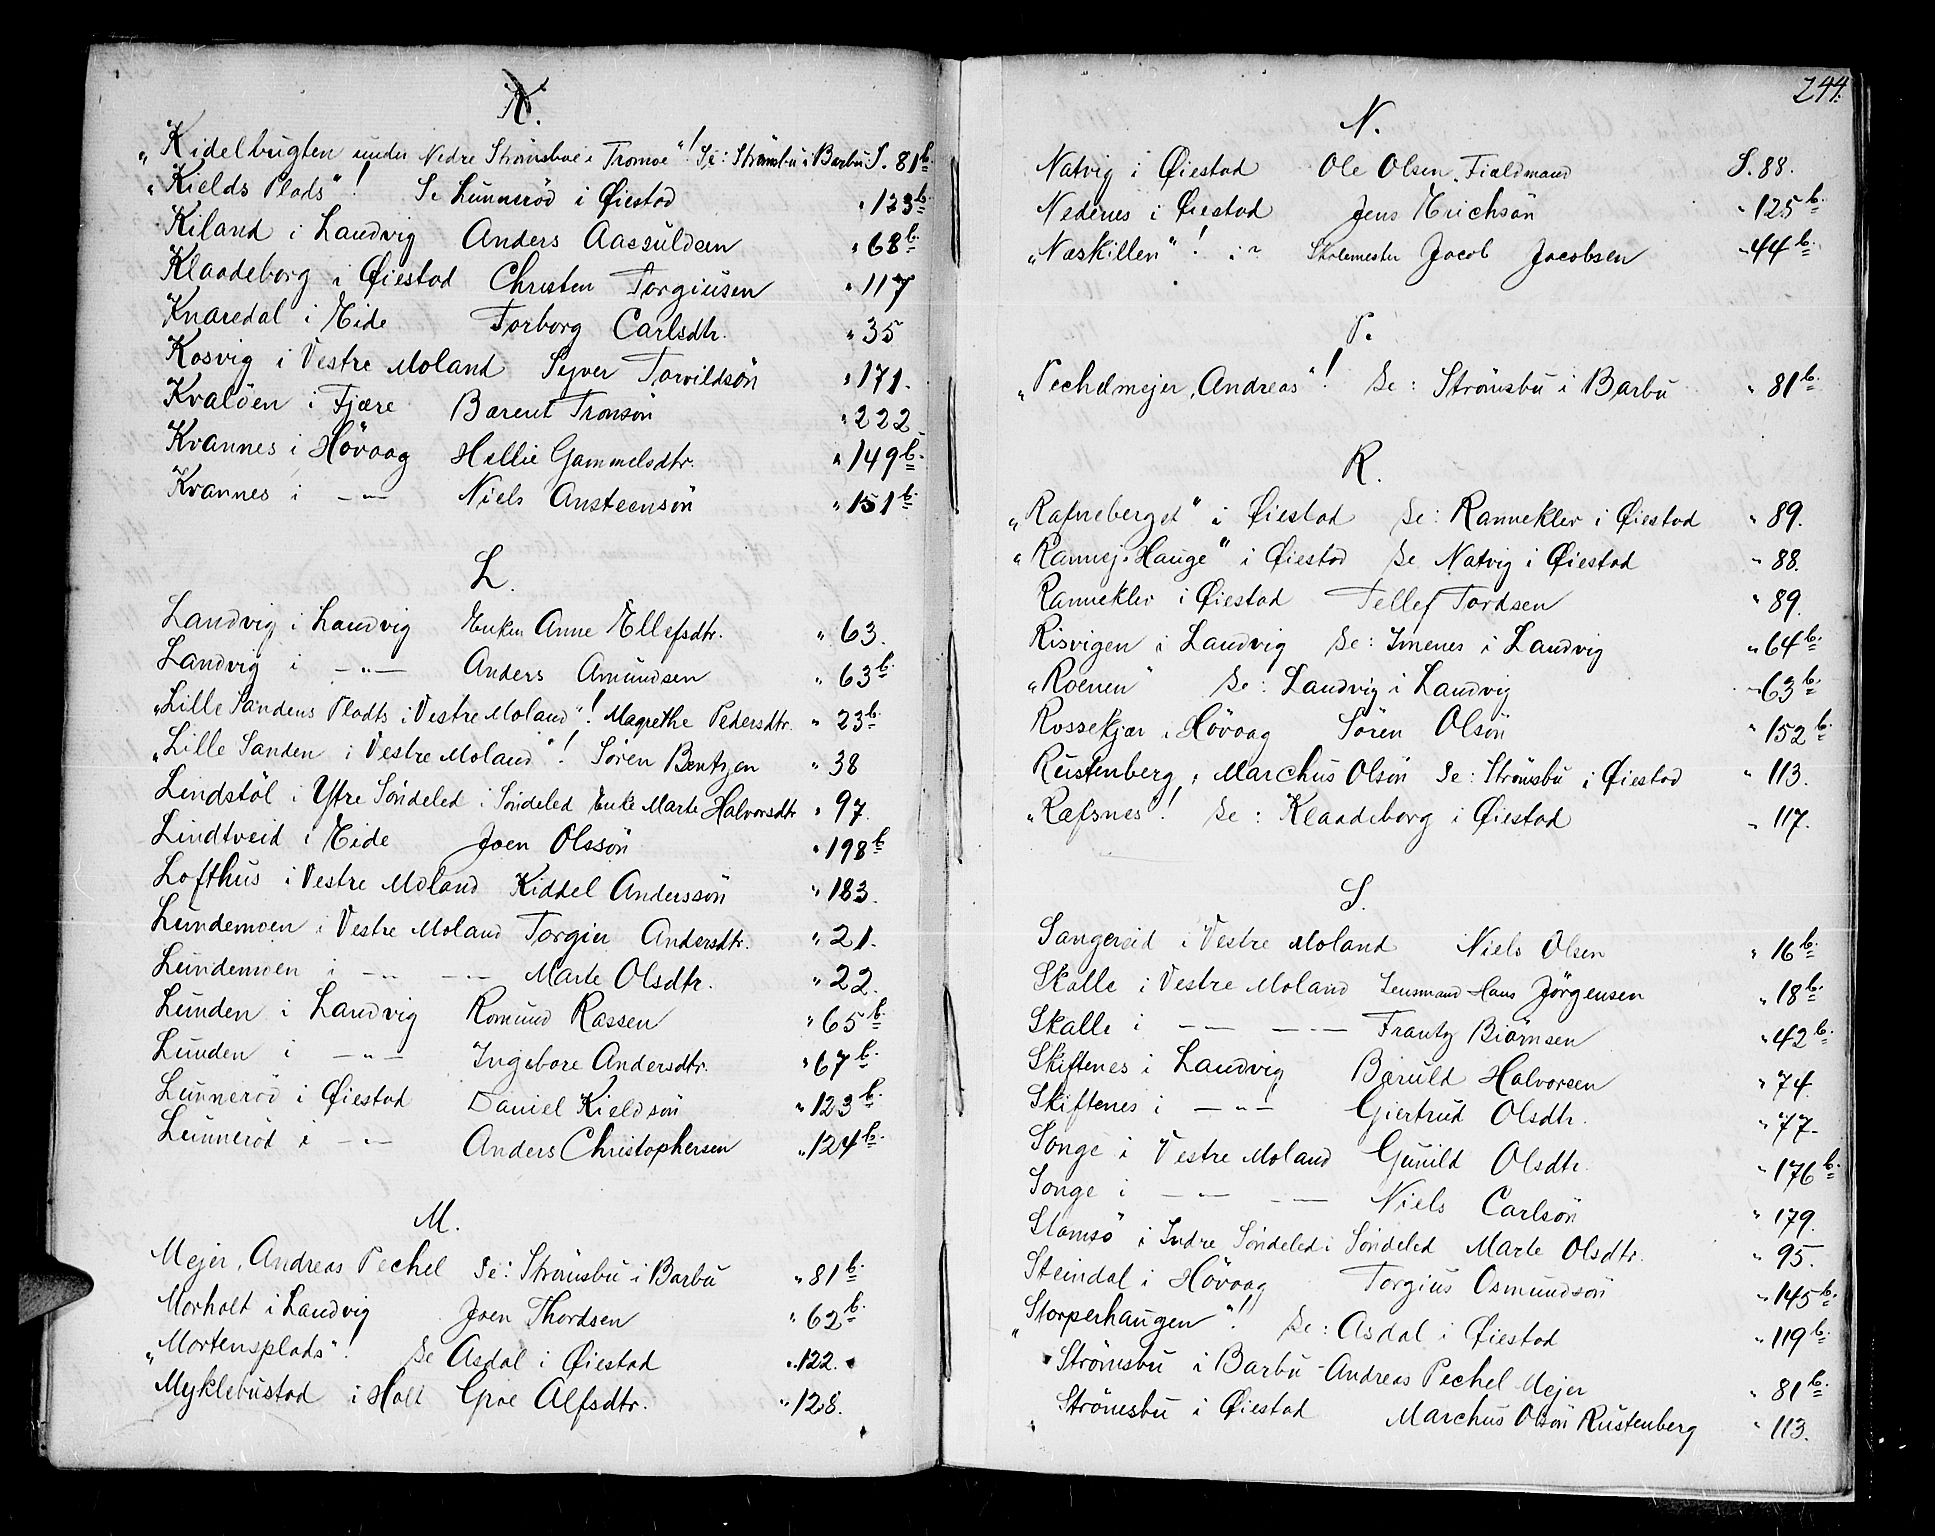 K.
„Kidelbugten under Nedre Strömsboe i Tromoe"! Se: Strömsbu i Barbu S. 81b.
„Kields Plads"! Se Lunneröd i Øiestad " 123b.
Kiland i Landvig Anders Aasuldsen " 68b.
Klaadeborg i Øiestad Christen Torgiusen " 117
Knaredal i Eide Torborg Carlsdtr. " 35
Kosvig i Vestre Moland Syver Torvildsön " 171.
Kvalöen i Fjære Barent Tronsön " 222
Kvannes i Hövaag Hellie Gammelsdtr. " 149b.
Kvannes i —"— Niels Ansteensön " 151b.
L.
Landvig i Landvig Enken Anne Ellefsdtr. " 63.
Landvig i —"— Anders Amundsen " 63b.
„Lille Sandens Plads i Vestre Moland"! Magrethe Pedersdtr. " 23b.
„Lille Sanden i Vestre Moland"! Søren Bentzen " 38
Lindstöl i Ytre Söndeled i Söndeled Enke Marte Halvorsdtr " 97.
Lindtveid i Eide Joen Olssön " 198b
Lofthus i Vestre Moland Kiddel Anderssön " 183.
Lundemoen i Vestre Moland Torgier Andersdtr. " 21.
Lundemoen i —"— —"— Marte Olsdtr. " 22.
Lunden i Landvig Romund Rassen " 65b.
Lunden i —"— Ingebore Andersdtr. " 67b.
Lunneröd i Øiestad Daniel Kieldsön " 123b.
Lunneröd i —"— Anders Christophersen " 124b.
M.
Mejer, Andreas Pechel Se: Strömsbu i Barbu " 81b.
Morholt i Landvig Joen Thordsen " 62b.
„Mortensplads"! Se Asdal i Øiestad " 122.
Myklebustad i Holt Groe Alfsdtr. " 128.
244.
N.
Natvig i Øiestad Ole Olsen Fieldmand S. 88.
Nedenes i Øiestad Jens Erichsön " 125b.
„Næskillen"! i ? Skolemester Jacob Jacobsen " 44b.
P.
„Pechelmejer, Andreas"! Se: Strömsbu i Barbu " 81b.
R.
„Rafneberget" i Øiestad Se: Rannekler i Øiestad " 89.
„Rannej-Hauge" i Øiestad Se Natvig i Øiestad " 88.
Rannekler i Øiestad Tellef Tordsen " 89.
Risvigen i Landvig Se: Imenes i Landvig " 64b.
„Roenen" Se: Landvig i Landvig " 63b.
Rossekjær i Hövaag Sören Olsön " 152b.
Rustenberg, Marchus Olsön Se: Strömsbu i Øiestad " 113.
„Ræfsnes"! Se: Klaadeborg i Øiestad " 117.
S.
Sangereid i Vestre Moland Niels Olsen " 16b.
Skalle i Vestre Moland Lensmand Hans Jørgensen " 18b.
Skalle i —"— —"— Frantz Biörnsen " 42b.
Skiftenes i Landvig Baruld Halvorsen " 74.
Skiftenes i —"— Giertrud Olsdtr. " 77.
Songe i Vestre Moland Gunild Olsdtr. " 176b.
Songe i —"— —"— Niels Carlsön " 179.
Stamsö i Indre Söndeled i Söndeled Marte Olsdtr. " 95.
Steindal i Hövaag Torgius Osmundsön " 145b.
„Storperhaugen"! Se: Asdal i Øiestad " 119b.
Strömsbu i Barbu Andreas Pechel Mejer " 81b.
Strömsbu i Øiestad Marchus Olsön Rustenberg " 113.